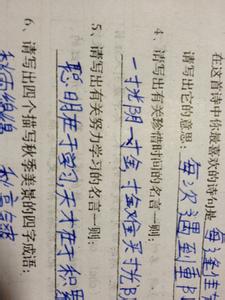 在这首诗中你最喜欢的诗句是 每逢佳
请写出它的意思: 每次遇到重阳
4、请写出有关珍惜时间的名言一则:
一寸光阴一寸金,寸金难买寸光阴
5、请写出有关努力学习的名言一则:
聪明在于学习,天才在于积累
6、请写出四个描写秋季美景的四字成语:
秋高气爽